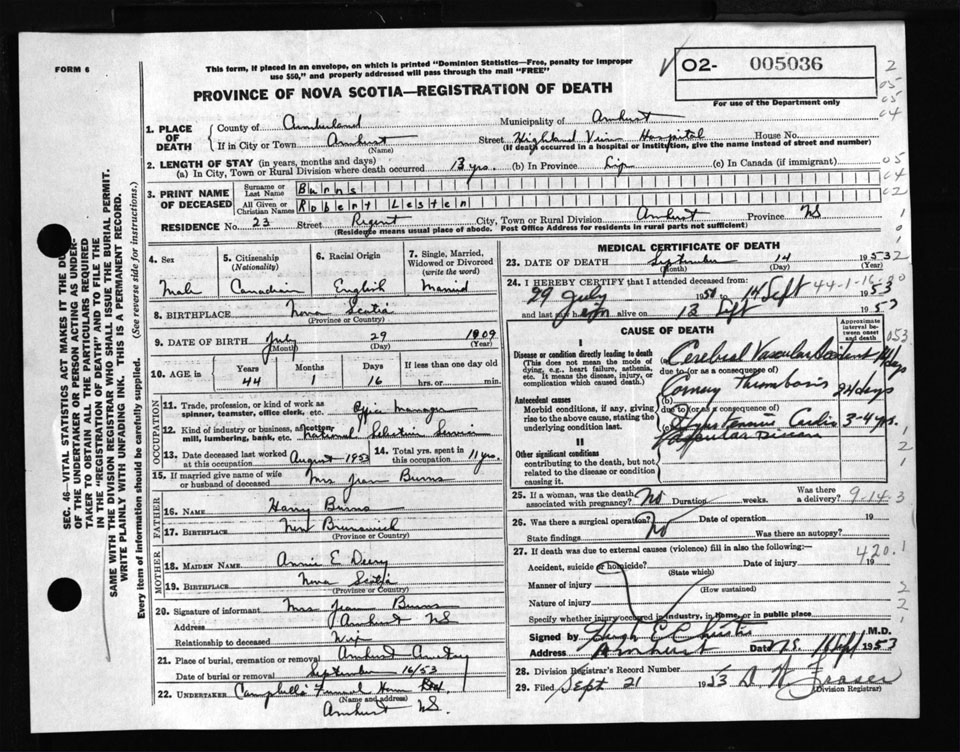 FORM 6
This form, if placed in an envelope, on which is printed "Dominion Statistics—Free, penalty for improper
use $50," and properly addressed will pass through the mail "FREE"
O2- 005036
For use of the Department only
PROVINCE OF NOVA SCOTIA—REGISTRATION OF DEATH
2
05
05
04
1. PLACE OF DEATH
County of Cumberland Municipality of Amherst
If in City or Town Amherst Street Highland View Hospital House No.
(Name) (If death occurred in a hospital or institution, give the name instead of street and number)
2. LENGTH OF STAY (in years, months and days)
(a) In City, Town or Rural Division where death occurred 13 yrs. (b) In Province Life (c) In Canada (if immigrant)
05
04
02
3. PRINT NAME OF DECEASED
Surname or Last Name Burns
All Given or Christian Names Robert Lester
RESIDENCE No. 23 Street Regent City, Town or Rural Division Amherst Province NS
(Residence means usual place of abode. Post Office Address for residents in rural parts not sufficient)
SEC. 46—VITAL STATISTICS ACT MAKES IT THE DU
OF THE UNDERTAKER OR PERSON ACTING AS UNDER-
TAKER TO OBTAIN ALL THE PARTICULARS REQUIRED
IN THE "REGISTRATION OF DEATH" AND TO FILE THE
SAME WITH THE DIVISION REGISTRAR WHO SHALL ISSUE THE BURIAL PERMIT.
WRITE PLAINLY WITH UNFADING INK. THIS IS A PERMANENT RECORD.
Every item of information should be carefully supplied. (See reverse side for instructions.)
4. Sex Male
5. Citizenship (Nationality) Canadian
6. Racial Origin English
7. Single, Married, Widowed or Divorced (write the word) Married
8. BIRTHPLACE Nova Scotia
(Province or Country)
9. DATE OF BIRTH July 29 1909
(Month) (Day) (Year)
10. AGE in Years 44 Months 1 Days 16 If less than one day old hrs. or min.
OCCUPATION
11. Trade, profession, or kind of work as spinner, teamster, office clerk, etc. Office Manager
12. Kind of industry or business, as cotton-mill, lumbering, bank, etc. National Selective Service
13. Date deceased last worked at this occupation August 1953
14. Total yrs. spent in this occupation 11 yrs.
15. If married give name of wife or husband of deceased Mrs Jean Burns
FATHER
16. NAME Harry Burns
17. BIRTHPLACE New Brunswick
(Province or Country)
MOTHER
18. MAIDEN NAME Annie E
19. BIRTHPLACE Nova Scotia
(Province or Country)
20. Signature of informant Mrs Jean Burns
Address Amherst NS
Relationship to deceased Wife
21. Place of burial, cremation or removal Amherst
Date of burial or removal September 16/53
22. UNDERTAKER Campbells Funeral Home
(Name and address)
Amherst NS.
MEDICAL CERTIFICATE OF DEATH
23. DATE OF DEATH September 14 1953
(Month) (Day) (Year)
24. I HEREBY CERTIFY that I attended deceased from:
29 July to 14 Sept 1953 44-1-16
and last saw him alive on 13 Sept
CAUSE OF DEATH
Approximate interval between onset and death
I
Disease or condition directly leading to death
(This does not mean the mode of dying, e.g., heart failure, asthenia, etc. It means the disease, injury, or complication which caused death.)
(a) Cerebral Vascular Accident
due to (or as a consequence of)
Antecedent causes
Morbid conditions, if any, giving rise to the above cause, stating the underlying condition last.
(b) Coronary Thrombosis 24 days
due to (or as a consequence of)
Hypertensive Cardio 3-4 yrs.
Vascular Disease
II
Other significant conditions
contributing to the death, but not related to the disease or condition causing it.
25. If a woman, was the death associated with pregnancy? No Duration weeks. Was there a delivery? 9-14-3
26. Was there a surgical operation? No Date of operation 19
State findings Was there an autopsy?
27. If death was due to external causes (violence) fill in also the following:— 420.1
Accident, suicide or homicide? Date of injury 19
(State which)
Manner of injury
(How sustained)
Nature of injury
Specify whether injury occurred in industry, in home, or in public place
Signed by Hugh E Christie M.D.
Address Amherst N.S. Date 16 Sept 1953
28. Division Registrar's Record Number
29. Filed Sept 21 1953 Fraser
(Division Registrar)